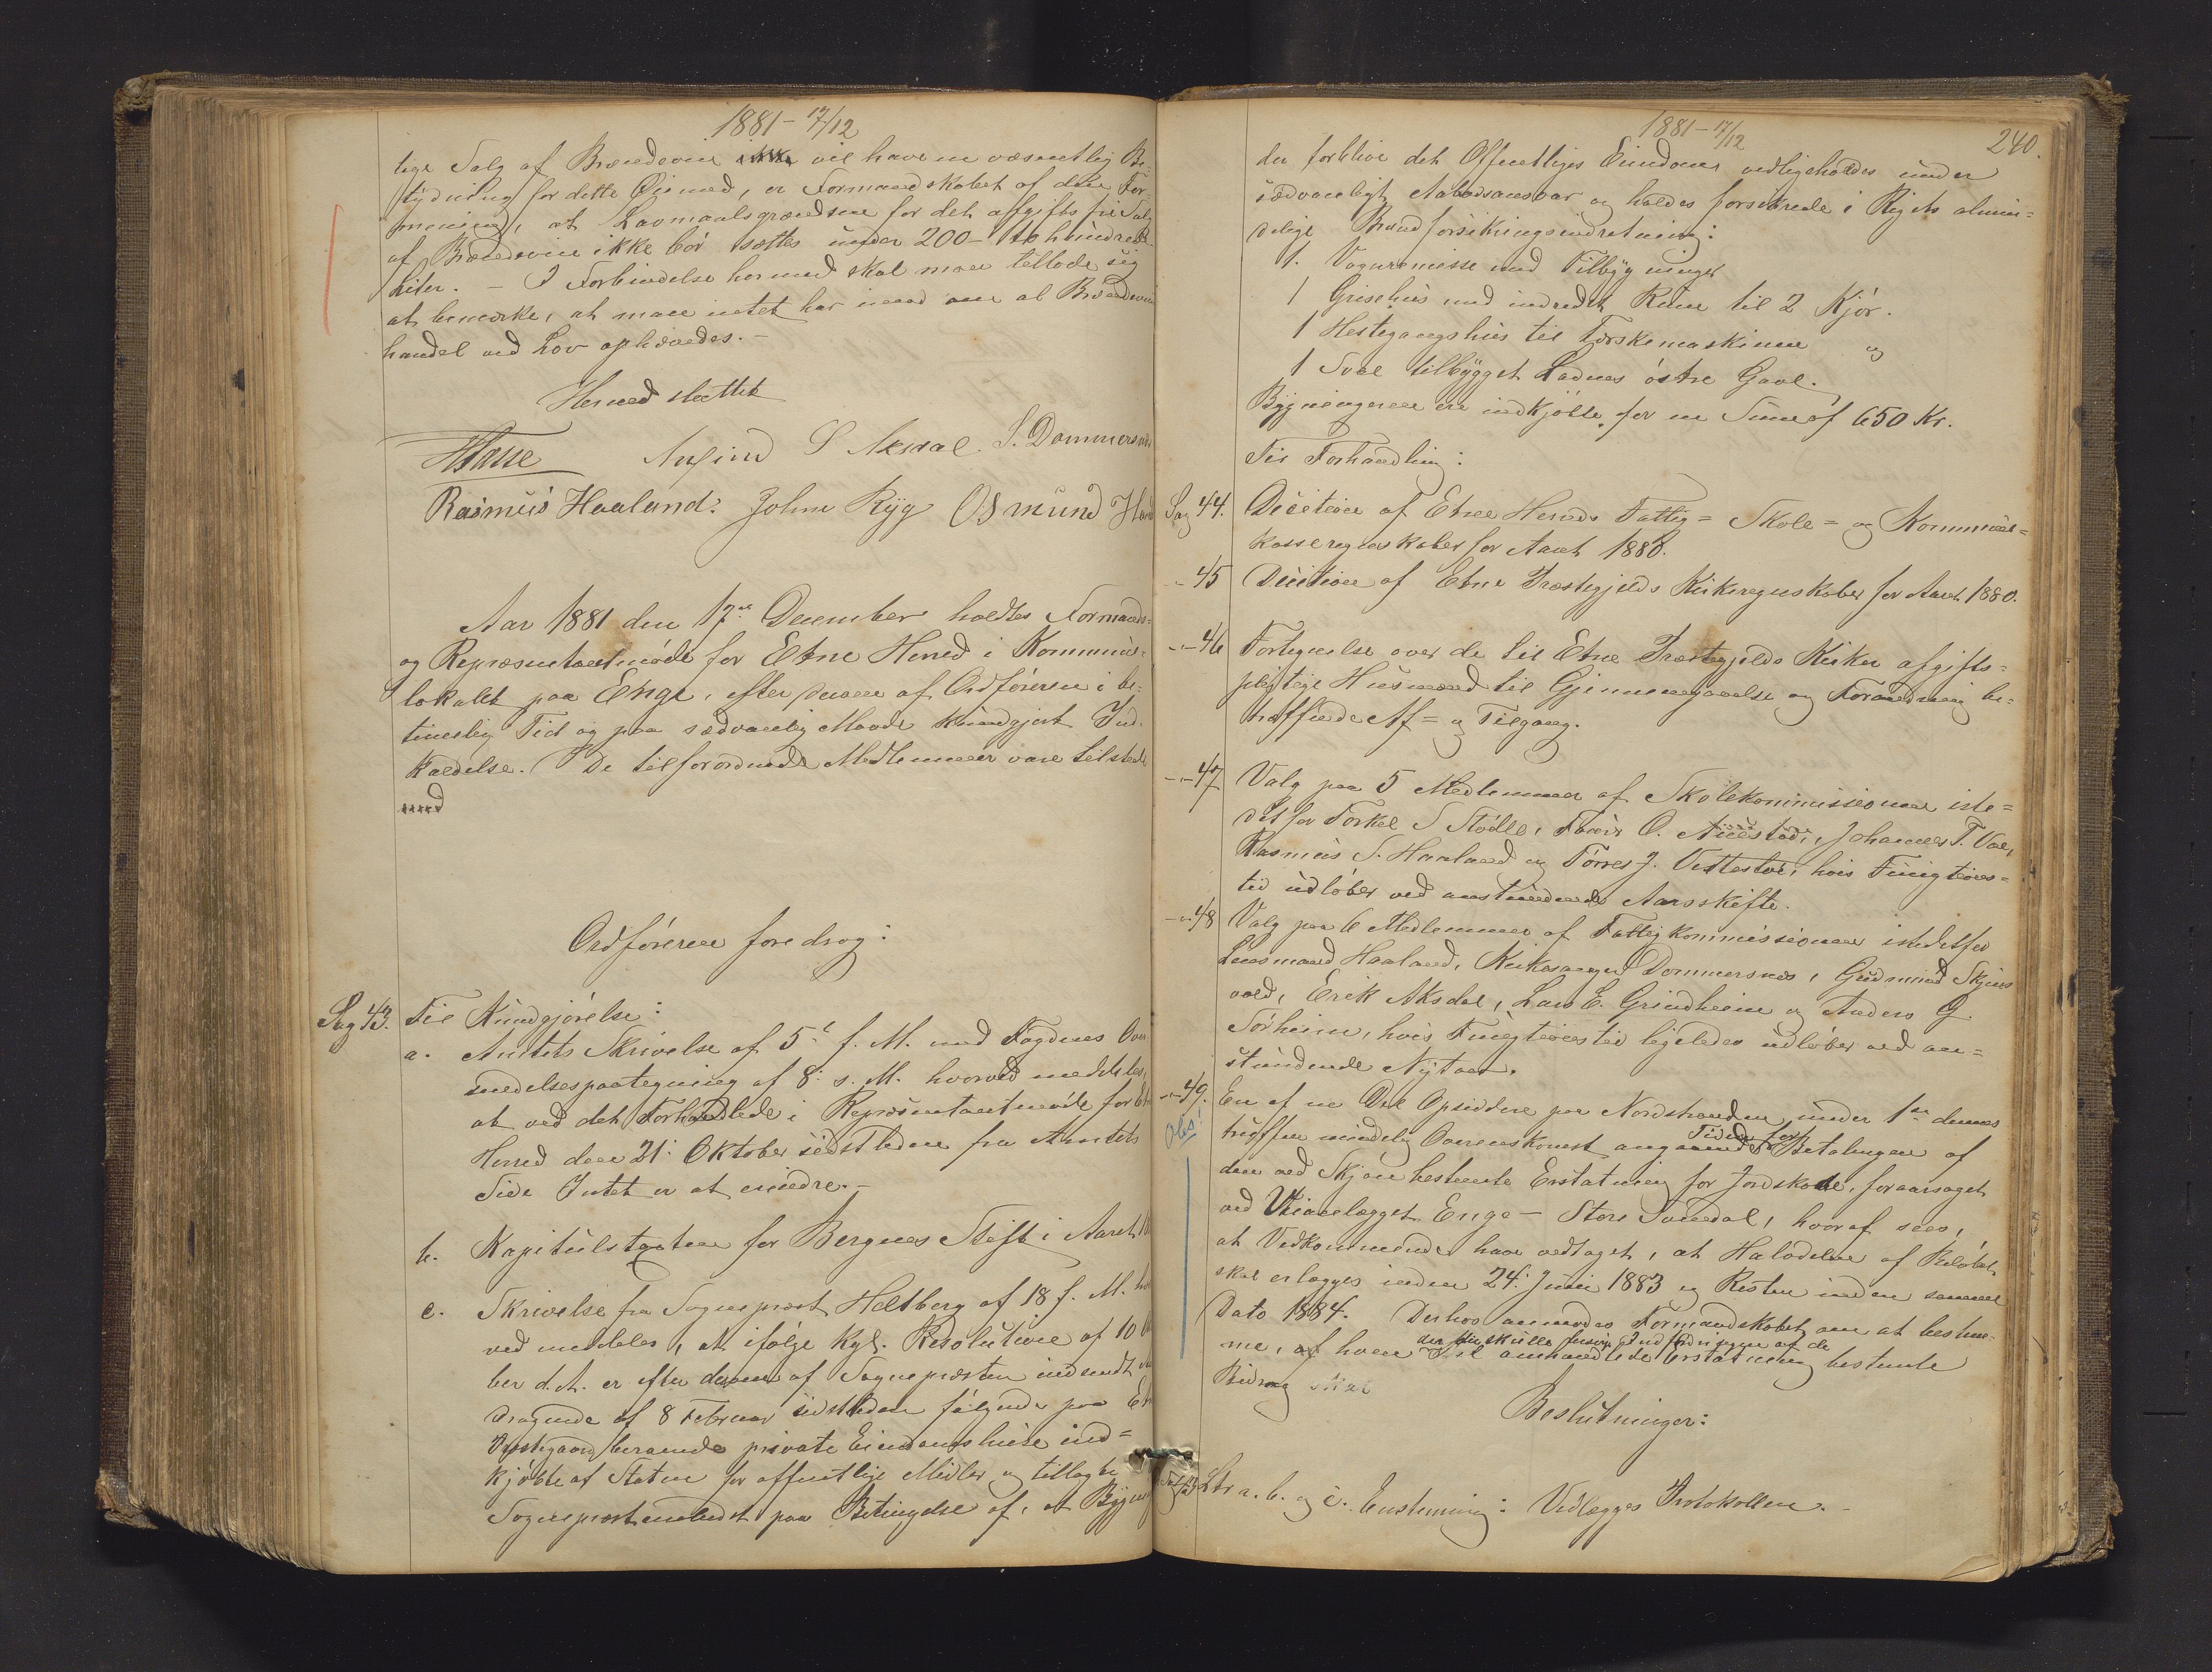 1881 - 17/12
lige Salg af Brændevin ikke vil have en væsentlig Be-
tydning for dette Øiemed, er Formandskabet af den For-
mening, at Lavmaalsgrændsen for det afgiftsfrie Salg
af Brændevin ikke bør sættes under 200 - to hundrede
Liter. - I Forbindelse hermed skal man tillade sig
at bemærke, at man intet har imod om al Brændevin
handel ved Lov ophævedes. -
Hermed sluttet
S Aksdal S. Dommersnæs
Rasmus Haaland. Johne Ryg Osmund
Aar 1881 den 17de December holdtes Formands-
og Repræsentantmøde for Etne Herred i Kommune-
lokalet paa Enge, efter denne af Ordføreren i be-
timelig Tid og paa sædvanlig Maade kundgjort Ind-
kaldelse. De tilforordnede Medlemmer vare tilstede
med
Ordføreren foredrog:
Sag 43. Til Kundgjørelse:
a. Amtets Skrivelse af 5te f. M. med Fogdens Over
sendelsespaategning af 8. s. M. hvorved meddeles,
at ved det Forhandlede i Repræsentantmøde for Etne
Herred den 21. Oktober sidstleden fra Amtets
Side Intet er at erindre. -
b. Kapitulstaxten for Bergens Stift i Aaret
c. Skrivelse fra Sogneprest Heltberg af 18 f. M. hvor
ved meddeles, at ifølge Kgl. Resolution af 10
ber d. A. er efter derom af Sognepresten indsendt An
dragende af 8 Februar sidstleden følgende paa Etne
Prestegaard værende private Eiendomshuse ind-
kjøbte af Staten for offentlige Midler og tillagte
Sogneprestembedet paa Betingelse af, at Bygnin
1881 - 17/12
240.
der forblive det Offentliges Eiendom, vedligeholdes under
sædvanligt Aabodsansvar og holdes forsikrede i Rigets almin-
delige Brandforsikringsindretning:
1. Vognremisse med Tilbygninger
1 Grisehus med indredet Rum til 2 Kjør.
1 Hestegangshus til Tærskemaskinen og
1 Sval tilbygget Ladens østre Gavl.
Bygningerne ere indkjøbte for en Sum af 650 Kr.
Til Forhandling:
Sag 44. Decision af Etne Herreds Fattig- Skole- og Kommune-
kasseregnskaber for Aaret 1880.
- 45 Decision af Etne Præstegjelds Kirkeregnskaber for Aaret 1880.
-"- 46 Fortegnelse over de til Etne Præstegjelds Kirker afgifts-
pligtige Husmænd til Gjennemgaaelse og Forandring be-
træffende Af- og Tilgang.
-"- 47 Valg paa 5 Medlemmer af Skolekommissionen iste-
detfor Torkel S Stødle, O. Johannes T. Vae,
Rasmus S. Haaland og Tørres J. hvis Funktions-
tid udløber ved anstundende Aarsskifte.
-"- 48 Valg paa 6 Medlemmer af Fattigkommissionen istedetfor
Lensmand Haaland, Kirkesanger Dommersnæs, Gudmund Skjens
vold, Erik Aksdal, Lars E. Grindheim og Anders G.
Sørheim, hvis Funktionstid ligeledes udløber ved an-
stundende Nytaar.
-"- 49. En af en Del Opsiddere paa Nordstranden under 1ste dennes
Obs! truffen mindelig Overenskomst angaaende Tiden for Betalingen af
den ved Skjøn bestemte Erstatning for Jordskade, foraarsaget
ved Veianlægget Enge - Store Sandal, hvoraf sees,
at Vedkommende have vedtaget, at Halvdelen af Beløbet
skal erlægges inden 24. Juni 1883 og Resten inden samme
Dato 1884. Derhos anmodes Formandskabet om at bestem-
me, af hvem der skulle Inddrivningen af de
til omhandlede Erstatning bestemte
Bidrag
Beslutninger:
Sag 43 Ltr a. b. og c. Enstemmig: Vedlægges Protokollen. -